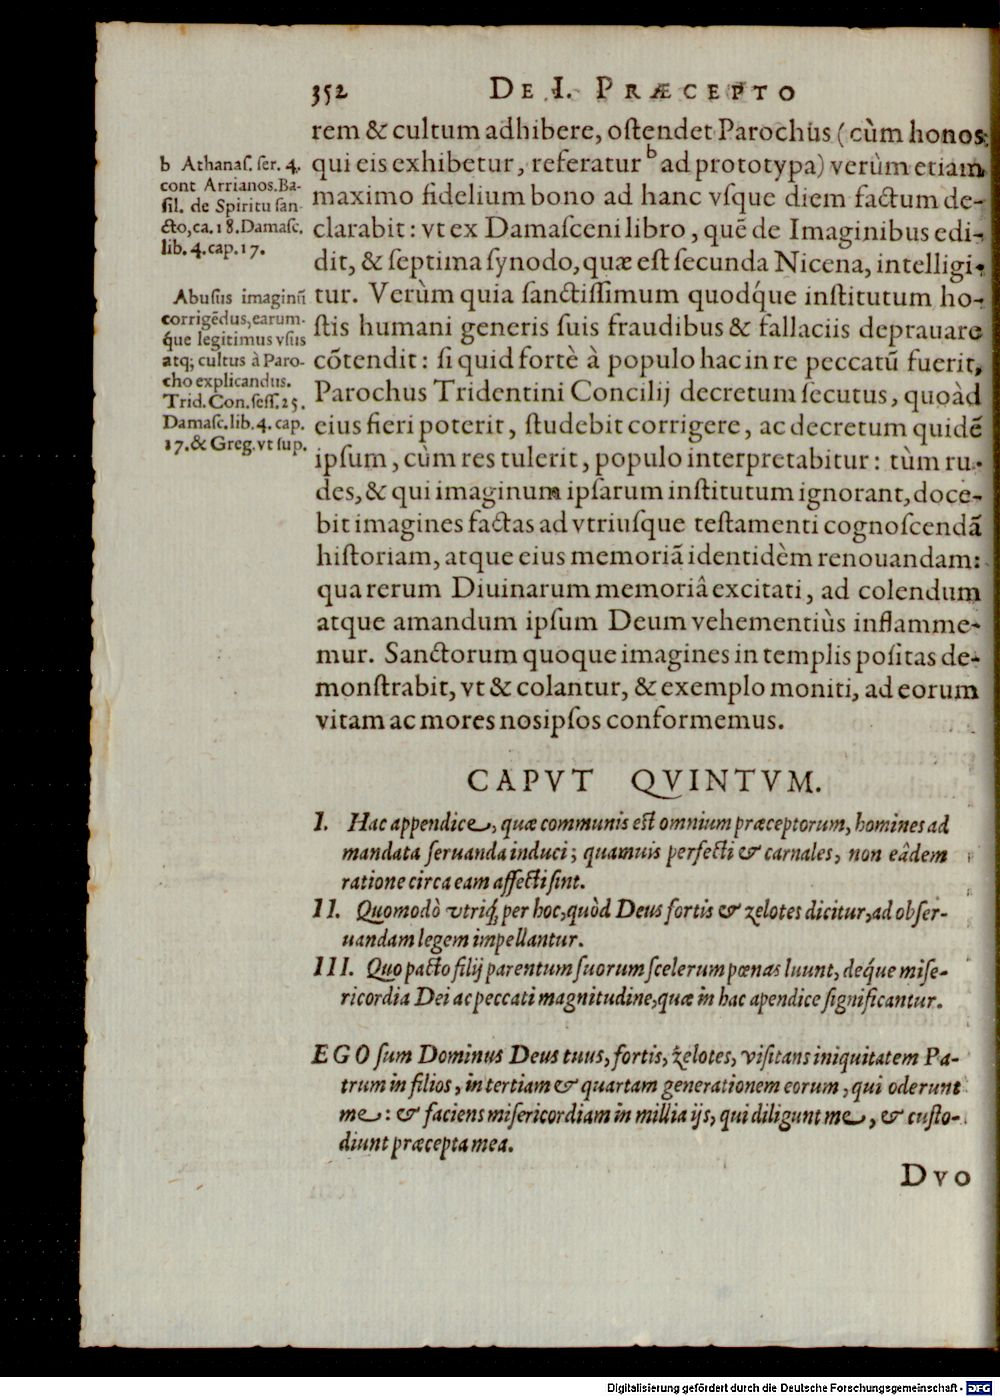 352 DE I. PRÆCEPTO
rem & cultum adhibere, oſtendet Parochus (cùm honos,
qui eis exhibetur, referatur b ad prototypa) verùm etiam
maximo fidelium bono ad hanc vſque diem factum de-
clarabit: vt ex Damaſceni libro, quẽ de Imaginibus edi-
dit, & ſeptima ſynodo, quæ eſt ſecunda Nicena, intelligi-
tur. Verùm quia ſanctiſſimum quodq́ue inſtitutum ho-
ſtis humani generis ſuis fraudibus & fallaciis deprauare
cõtendit: ſi quid fortè à populo hac in re peccatũ fuerit,
Parochus Tridentini Concilij decretum ſecutus, quoàd
eius fieri poterit, ſtudebit corrigere, ac decretum quidẽ
ipſum, cùm res tulerit, populo interpretabitur: tùm ru-
des, & qui imaginum ipſarum inſtitutum ignorant, doce-
bit imagines factas ad vtriuſque teſtamenti cognoſcendã
hiſtoriam, atque eius memoriã identidèm renouandam:
qua rerum Diuinarum memoriâ excitati, ad colendum
atque amandum ipſum Deum vehementiùs inflamme-
mur. Sanctorum quoque imagines in templis poſitas de-
monſtrabit, vt & colantur, & exemplo moniti, ad eorum
vitam ac mores noſipſos conformemus.
b Athanaſ. ſer. 4.
cont Arrianos. Ba-
ſil. de Spiritu ſan-
cto, ca. 18. Damaſc.
lib. 4. cap. 17.
Abuſus imaginũ
corrigẽdus, earum-
q́ue legitimus vſus
atq; cultus à Paro-
cho explicandus.
Trid. Con. ſeſſ. 25.
Damaſc. lib. 4. cap.
17. & Greg. vt ſup.
CAPVT QVINTVM.
I. Hac appendice, quæ communis eſt omnium præceptorum, homines ad
mandata ſeruanda induci; quamuis perfecti & carnales, non eâdem
ratione circa eam affecti ſint.
II. Quomodò vtriq́; per hoc, quòd Deus fortis & zelotes dicitur, ad obſer-
uandam legem impellantur.
III. Quo pacto filij parentum ſuorum ſcelerum pœnas luunt, deq́ue miſe-
ricordia Dei ac peccati magnitudine, quæ in hac apendice ſignificantur.
EGO ſum Dominus Deus tuus, fortis, zelotes, viſitans iniquitatem Pa-
trum in filios, in tertiam & quartam generationem eorum, qui oderunt
me: & faciens miſericordiam in millia ijs, qui diligunt me, & cuſto-
diunt præcepta mea.
DVO
Digitalisierung gefördert durch die Deutsche Forschungsgemeinschaft - DFG